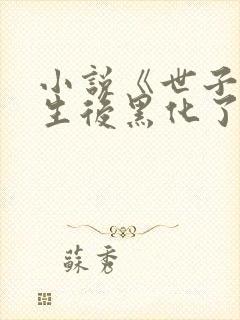 小說《世子
生後黑化了
蘇秀